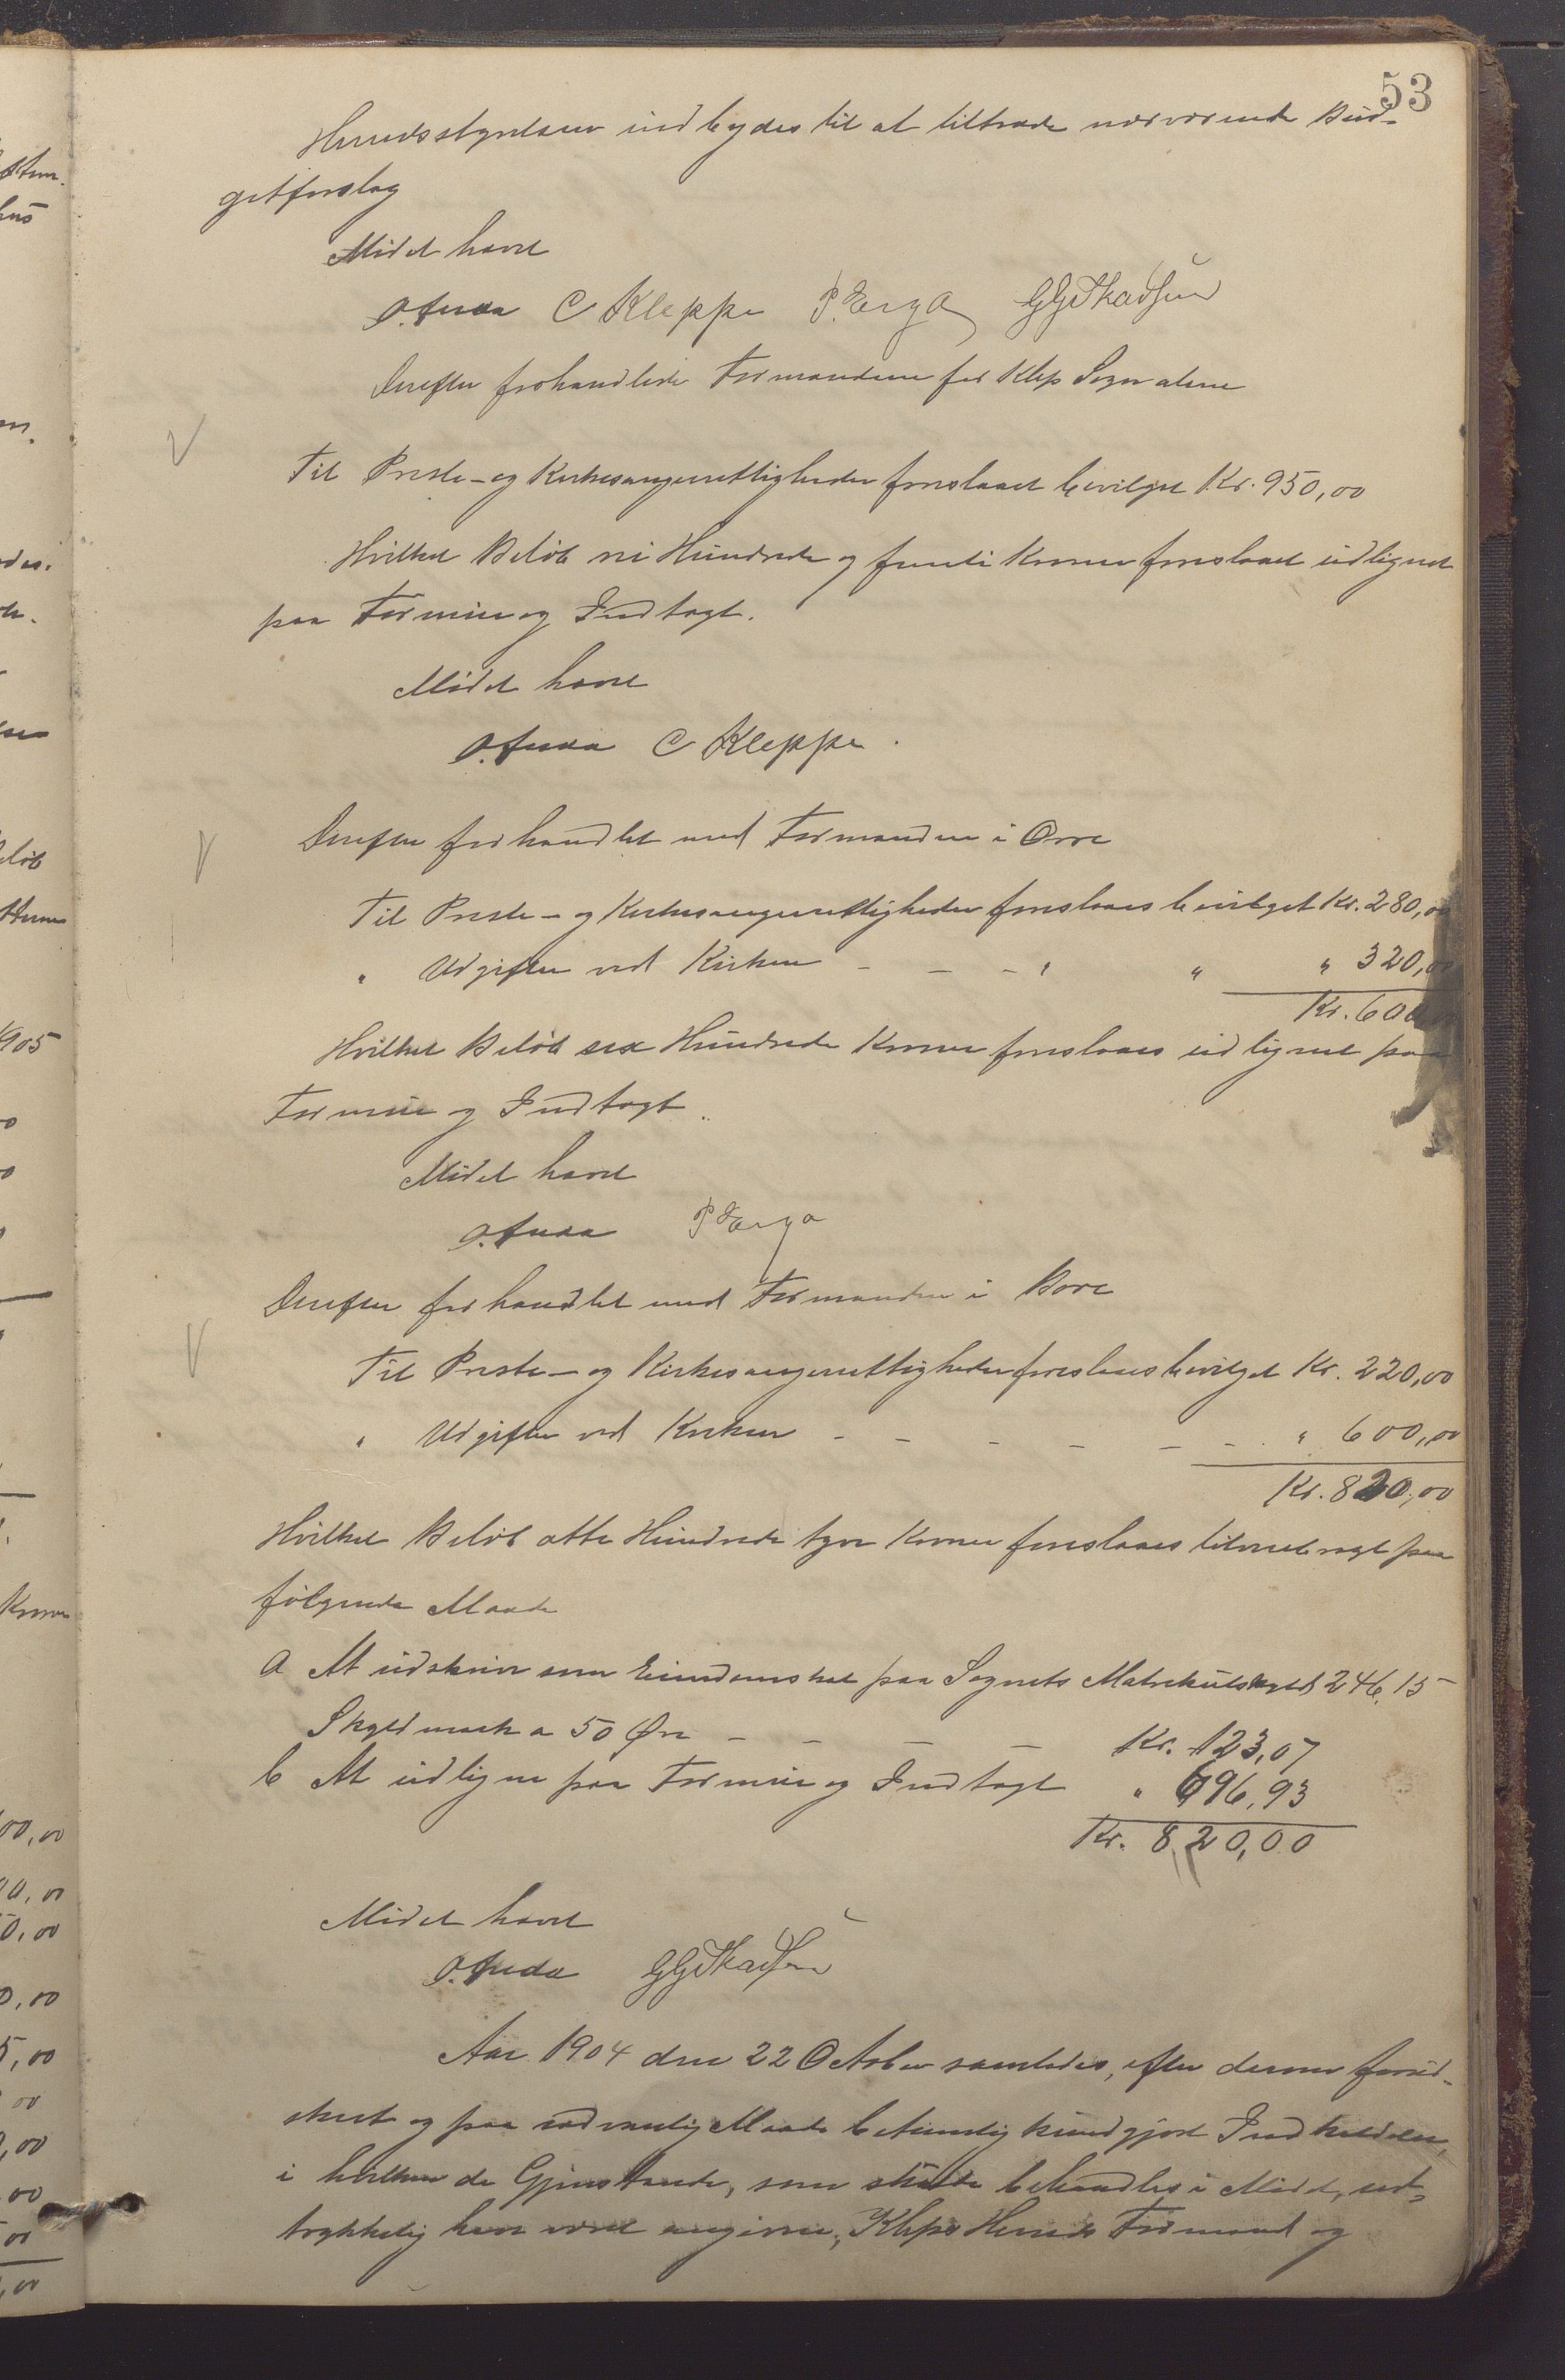 53
Herredsstyrelsen indbydes til at tiltræde nærværende Bud-
getforslag
Mødet hævet
O. Anda C Kleppe P. Erga GGSkadsem
Derefter forhandlede Formændene for Klep Sogn alene
Til Preste- og Kirkesangerrettigheder foreslaaet bevilget Kr. 950,00
Hvilket Beløb ni Hundrede og femti Kroner foreslaaet udlignet
paa Formue og Indtægt.
Mødet hævet
O. Anda C Kleppe.
Derefter forhandlet med Formanden i Orre
Til Preste- og Kirkesangerrettigheder foreslaaes bevilget Kr. 280,00
" Udgifter ved Kirken - - - " " " 320,00
Kr. 600
Hvilket Beløb sex Hundrede Kroner foreslaaes udlignet paa
Formue og Indtægt.
Mødet hævet
O. Anda P Erga
Derefter forhandlet med Formanden i Bore
Til Preste- og Kirkesangerrettigheder foreslaaes bevilget Kr. 220,00
" Udgifter ved Kirken - - - - - - " 600,00
Kr. 820,00
Hvilket Beløb otte Hundrede tyve Kroner foreslaaes tilveiebragt paa
følgende Maade
a At udskrive som Eiendomsskat paa Sognets Matrikulskyld 246,15
Skyldmark a 50 Øre - - - - Kr. 123,07
b At udligne paa Formue og Indtægt " 696,93
Kr. 820,00
Mødet hævet
O. Anda GGSkadsem
Aar 1904 den 22 October samledes, efter dertil forud-
skeet og paa sædvanlig Maade betimelig kundgjort Indkaldelse,
i hvilken de Gjenstande, som skulde behandles i Mødet, ud-
trykkelig have været angivne, Kleps Herreds Formænd og